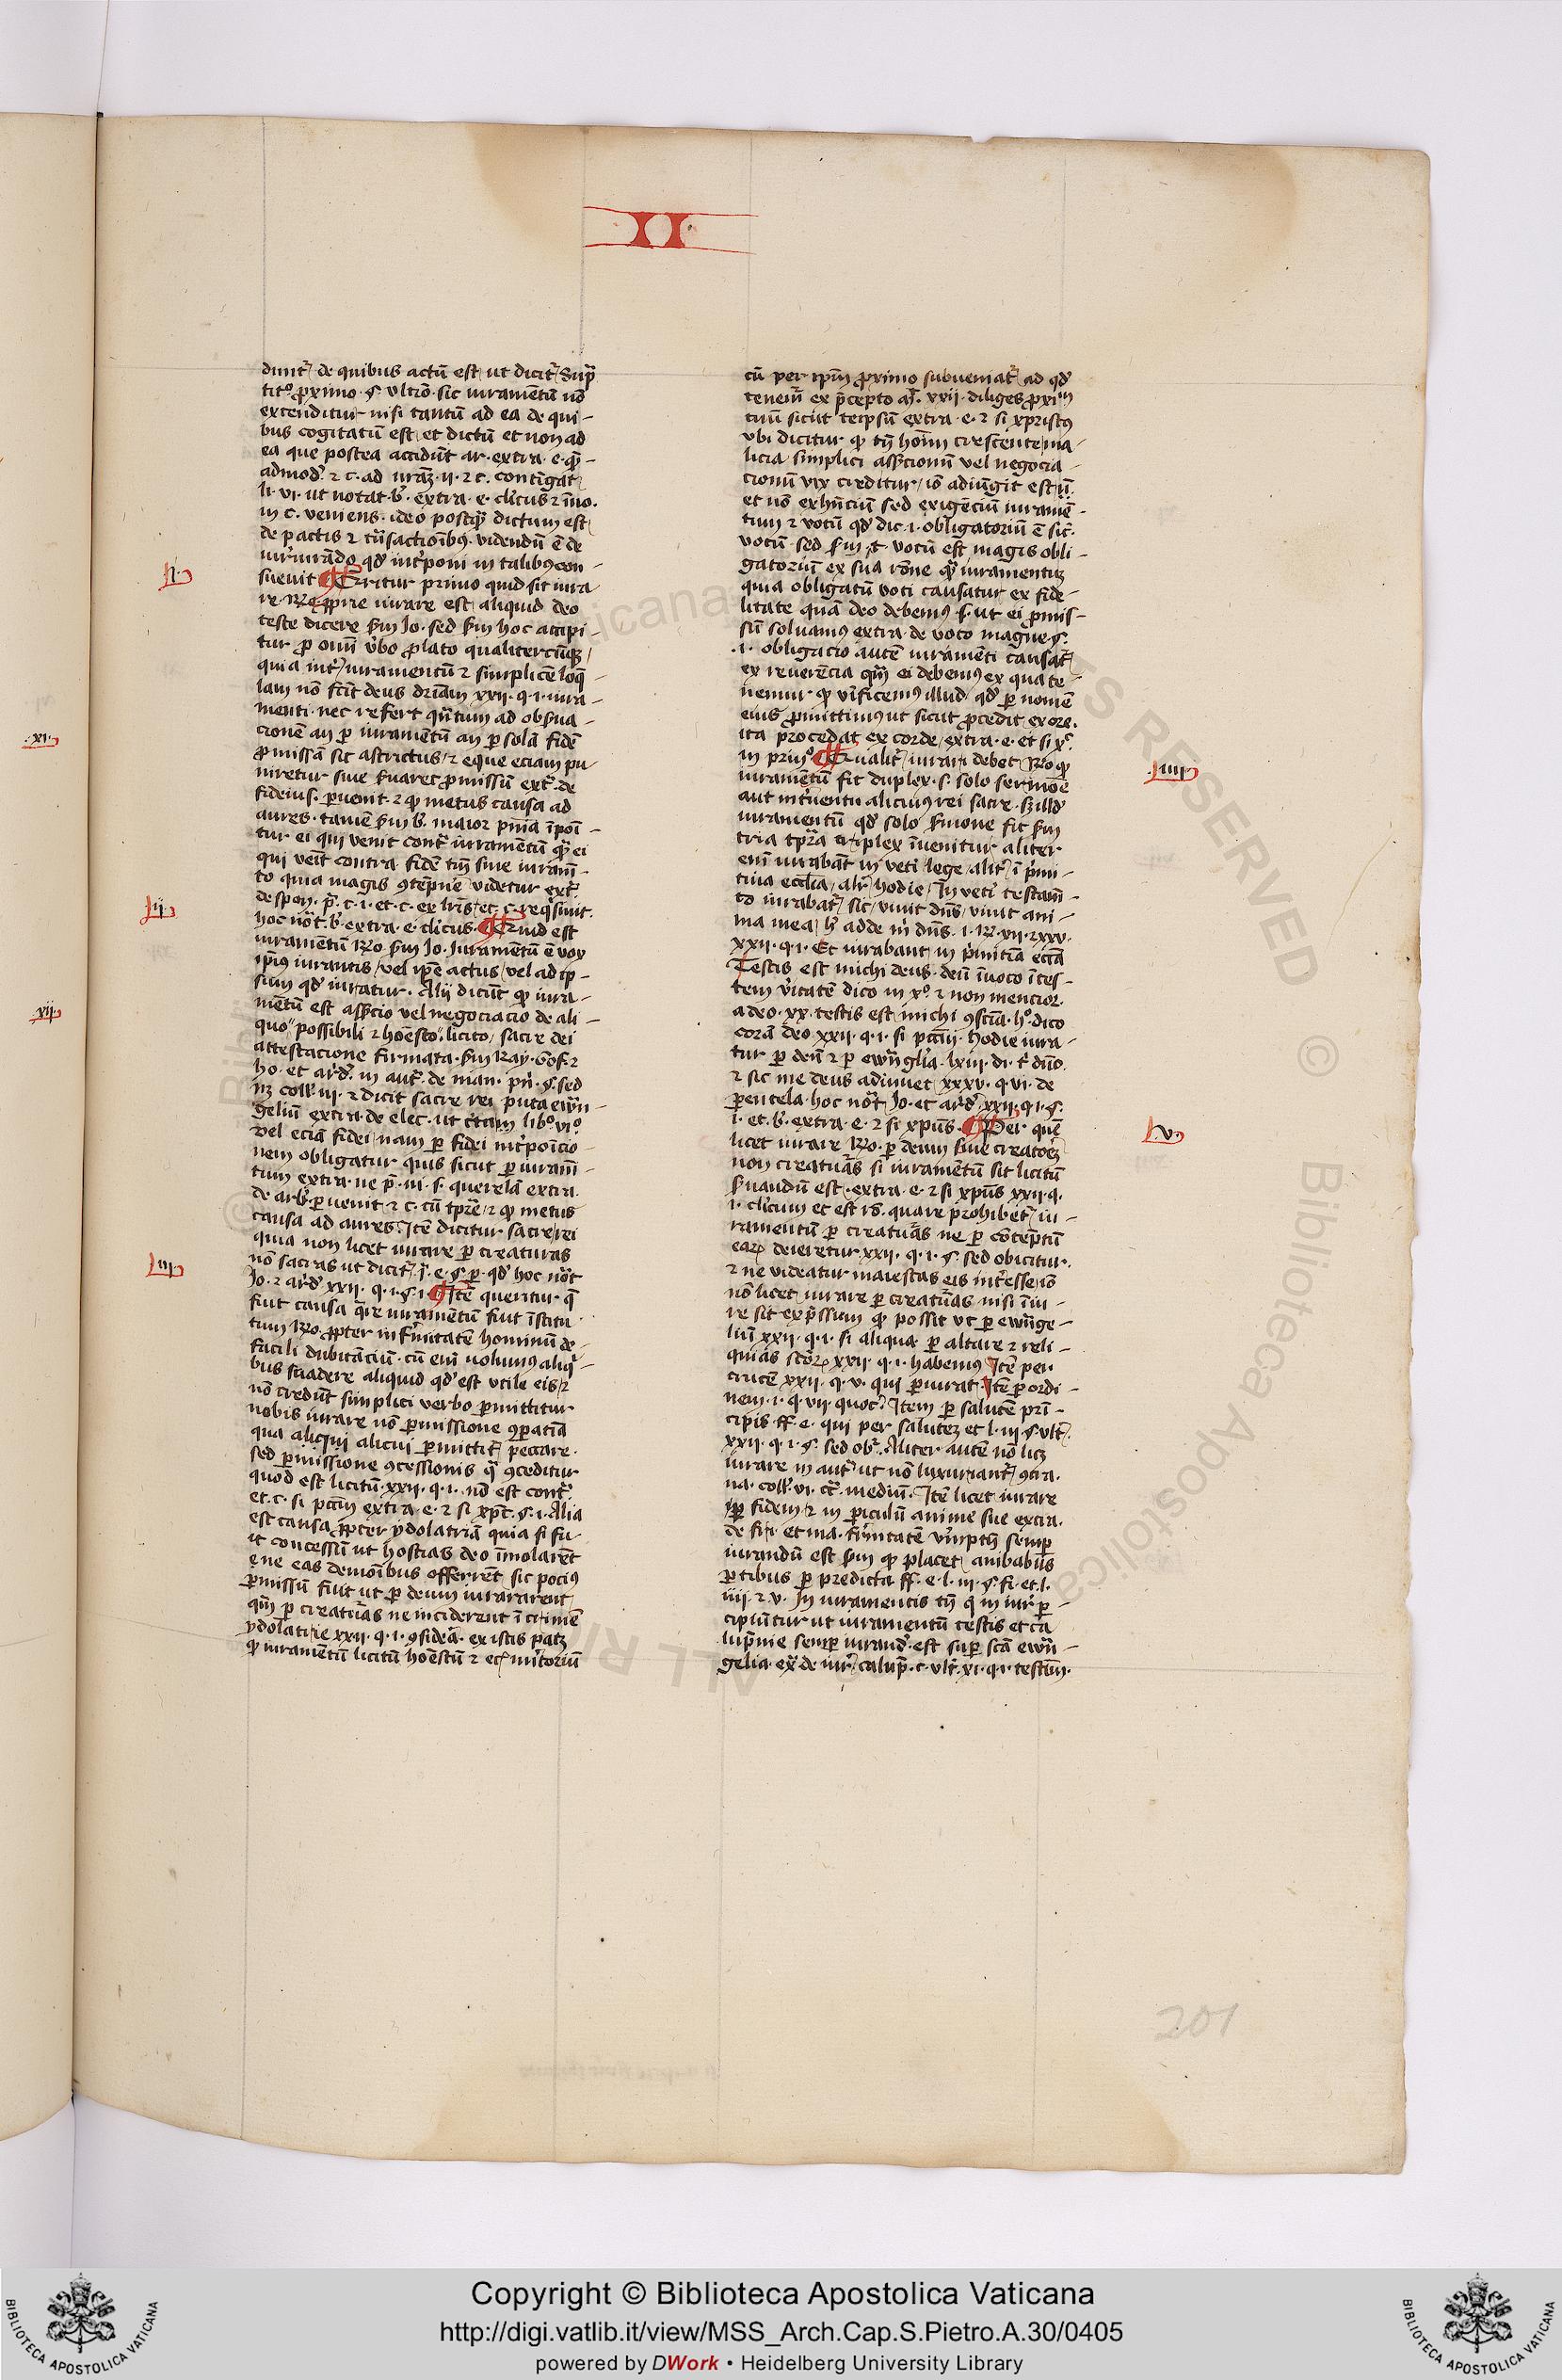 II
dunt᷑ de quibus actū est ut dicit᷑ Supᵃ
titᵒ ꝓximo · § ultiō · sic iuramentū nō
extenditur nisi tantū ad ea de qui-
bus cogitatū est et dictū et non ad
ea que postea accidūt ar· extra· e· qͣ-
admodͦ ⁊ c· ad ur̄aꝫ· ii· ⁊ c· contīgat
li· vi· ut notat b᷑· extra· e· cl̓icus ⁊ īno·
in c· veniens· ideo postqͣ dictum est
de pactis ⁊ tn̄sactionibꝰ· videndū ē de
iur̓iurādo qd̓ int̓poni in talibꝰ con-
.i.
sueuit ¶ Q̄ritur primo quid sit iura
re Rͦ ꝓprie iurare est aliquid deo
teste dicere sm̄ Jo· sed sm̄ hoc accipi-
tur ꝓ om̄i v̓bo ꝓlato qualitercūqꝫ
quia int̓ iuramentū ⁊ simplicē loq̄-
lam nō fecit deus dr̄iam xxii· q· i· iura-
menti· nec refert qn̄tum ad obs̓ua-
cionē an ꝑ iuramentū an ꝑ solā fidē
.xi.
ꝓmissā sic astrictus ⁊ eque eciam pu
niretur siue s̓uaret ꝓmissū ext᷑· de
fideius· ꝑuenit· ⁊ ꝙ metus causa ad
aures· tamē sm̄ b᷑· maior pn̄ia īpoi-
tur ei qui venit contͣ iuramentū qͣ ei
qui veīt contra fidē tm̄ siue iuram̄-
to quia magis ꝯtēpn̄e videtur ext᷑
.ii.
de spon· p̄· c· i· et· c· ex lr̄is et c· req̓siuit·
hoc nō̄t b᷑· extra· e· cl̓icus· ¶ Quid est
iuramentū Rͦ sm̄ Jo· Juramentū ē vox
ip̄ius iurantis vel ip̄e actus vel ad ip-
sum qd̓ iuratur· Alij dicūt ꝙ iura-
.xii.
mētū est ass̓cio vel negociacio de ali-
quo possibili ⁊ hoēsto licito sacre dei
attestacione firmata· sm̄ Ray· Gof· ⁊
ho· et ard̓· in aut᷑· de man· pn̄· § sed
nͣ coll̓· iii· ⁊ dicit sacre rei puta ewn̄-
geliū extra· de elec· ut ct̄am libͦ viͦ
vel eciā fidei nam ꝑ fidei int̓poīcio-
nem obligatur quis sicut ꝑ iuram̄-
tum extra· ne p̄· iii· s· querelā extra·
de arb· ꝑuenit ⁊ c· cū tꝑe ⁊ ꝙ metus
causa ad aures· Itē dicitur sacre rei
quia non licet iurare ꝑ creaturas
.iii.
nō sacras ut dicit᷑ j᷑· e· § ꝑ· qd̓ hoc nō̄t
Jo· ⁊ ard̓ xxii· q· i· § i· ¶ Itē queritur q̄
fuit causa q̄re iuramentū fuit īstitu-
tum Rͦ ꝓpter infirmitatē hominū de-
facili dubitāciū· cū eni uolumꝰ aliqͥ-
bus suadere aliquid qd̓ est utile eis ⁊
nō credūt simplici verbo ꝑmittitur
nobis iurare nō ꝑmissione ꝯꝑatiā
qua aliqui alicui ꝑmittit᷑ peccare·
sed ꝑmissione ꝯcessionis qͣ ꝯceditur
quod est licitū· xxii· q· i· nō est contͣ·
et· c· si pctīm extra· e· ⁊ si xp̄c· § i· Alia
est causa ꝓpter ydolatriā quia si fu-
it concessū ut hostias deo īmolarēt
ne eas demonibus offerrēt sic pociꝰ
ꝑmissū fuit ut ꝑ deum iurararent
qm̄ ꝑ creatᵃs ne inciderent ī crimē
ydolatrie xxii· q· i· ꝯsideā· ex istis patꝫ
ꝙ iuramētū licitū hoēstū ⁊ ec̄ mitoriū
cū per ip̄m ꝓximo subueniat᷑ ad qd̓
teneim̄ ex p̄cepto aͣ· xxii· diliges ꝓximū
tuū sicut teip̄sū extra· e· ⁊ si xpristꝰ
vbi dicitur ꝙ tn̄ hoīm crescente ma-
licia simplici ass̓cionū vel negocia-
cionū vix creditur iō adiūgit est ū
et nō exhn̄ciū sed exigēciū iuramē-
tum ⁊ votū qd̓ dic· i· obligatoriū ē sic̄·
votū· sed sm̄ t· votū est magis obli-
gatoriū ex sua rōne qͣ iuramentꝫ
quia obligatū voti causatur ex fide-
litate quā deo debemꝰ s· ut ei ꝓmis-
sū soluamꝰ extra· de voto magne §
.i· obligacio autē iuramēti causat᷑
ex reuerēcia qm̄ ei debemꝰ ex qua te-
nemur ꝙ v̓ificemꝰ illud qd̓ ꝑ nomē
eius ꝓmittimꝰ ut sicut ꝓcedit ex ore·
ita procedat ex corde extra· e· et si xͨ
.iiii.
in prinͦ ¶ Qualit᷑ iurari debet Rͦ ꝙ
iuramētū fit duplex· s· solo sermōe
aut int̓uentu alicuiꝰ rei sacre· Sꝫ illd̓
iuramentū qd̓ solo s̓mone fit sm̄
tria tꝑa triplex īuenitur aliter
eni iurabāt in vet̓i lege alit᷑ ī pͥmi-
tiua ecclīa al̓r hodie In vet̓i testam̄-
to iurabāt sic viuit dn̄s viuit ani-
ma mea h᷑ adde m̓ dn̄s· i· R· vii· ⁊ xxv·
xxii· q· i· Et iurabant in pͥmitiā eccā
Testis est michi deus· deū īuoco ī tes-
tem v̓itatē dico in xͦ ⁊ non mentior·
a deo· xx· testis est michi ꝯscīa· hͦ· dico
corā deo xxii· q· i· si pctīm· hodie iura-
tur ꝑ deū ⁊ ꝑ ewn̄glīa· lxiii· di· tͥ dn̄o·
⁊ sic me deus adiuuet xxxv· q· vi· de
ꝑentela· hoc nō̄t Jo· et ard̓ xxii· q· i· §
.v.
i· et· b᷑· extra· e· ⁊ si xpūs· ¶ Per quē
licet iurare Rͦ· ꝑ deum siue creatoꝝ
non creatᵃs si iuramentū sit licitū
s̓uandū est· extra· e· ⁊ si xpūs xxii· q·
i· cl̓icum et est rō· quare prohibet᷑ iu-
ramentū ꝑ creatᵃs ne ꝑ cōtēptū
eaꝝ deieretur xxii· q· i· § sed obicitur·
⁊ ne videatur maiestas eis int̓esse iō
nō licet iurare ꝑ creatᵃs nisi ī iu-
re sit exp̄ssum ꝙ possit ut ꝑ ewn̄ge-
liū xxii· q· i· si aliqua ꝑ altare ⁊ reli-
quias sctoꝝ xxii· q· i· habemus Itē per
crucē xxii· q· v· qui ꝑiurat· Itē ꝑ ordi-
nem· i· q· vii quocͣ· Item ꝑ salutē prī-
cipis ff· e· qui per salutem et l· iii § ult᷑·
xxii· q· i· § sed ob᷑· Aliter autē nō licꝫ
iurare in aut᷑ ut nō luxuriant᷑ ꝯtra·
na· coll̓· vi· cͣ mediū· Itē licet iurare
ꝑ fidem ⁊ in ꝑiculū anime sue extra·
de fi· i· et ma· firmitatē v̓ūptn̄ semꝑ
iurandū est sm̄ ꝙ placet ambabus
ꝑtibus ꝑ predicta ff· e· l· iii· § fi· et· l·
iiii· ⁊ v· In iuramentis tn̄ q̄ in iur̄ p̄-
cipiūtur ut iuramentū testis et ca-
lūpnie semꝑ iurand̓· est suꝑ scā ewn̄-
gelia· ex̄ de iur̄ calūp̄· c· ult᷑· xi· q· i· testim·
201
Copyright © Biblioteca Apostolica Vaticana
http://digi.vatlib.it/view/MSS_Arch.Cap.S.Pietro.A.30/0405
powered by DWork • Heidelberg University Library
BIBLIOTECA APOSTOLICA VATICANA
BIBLIOTECA APOSTOLICA VATICANA